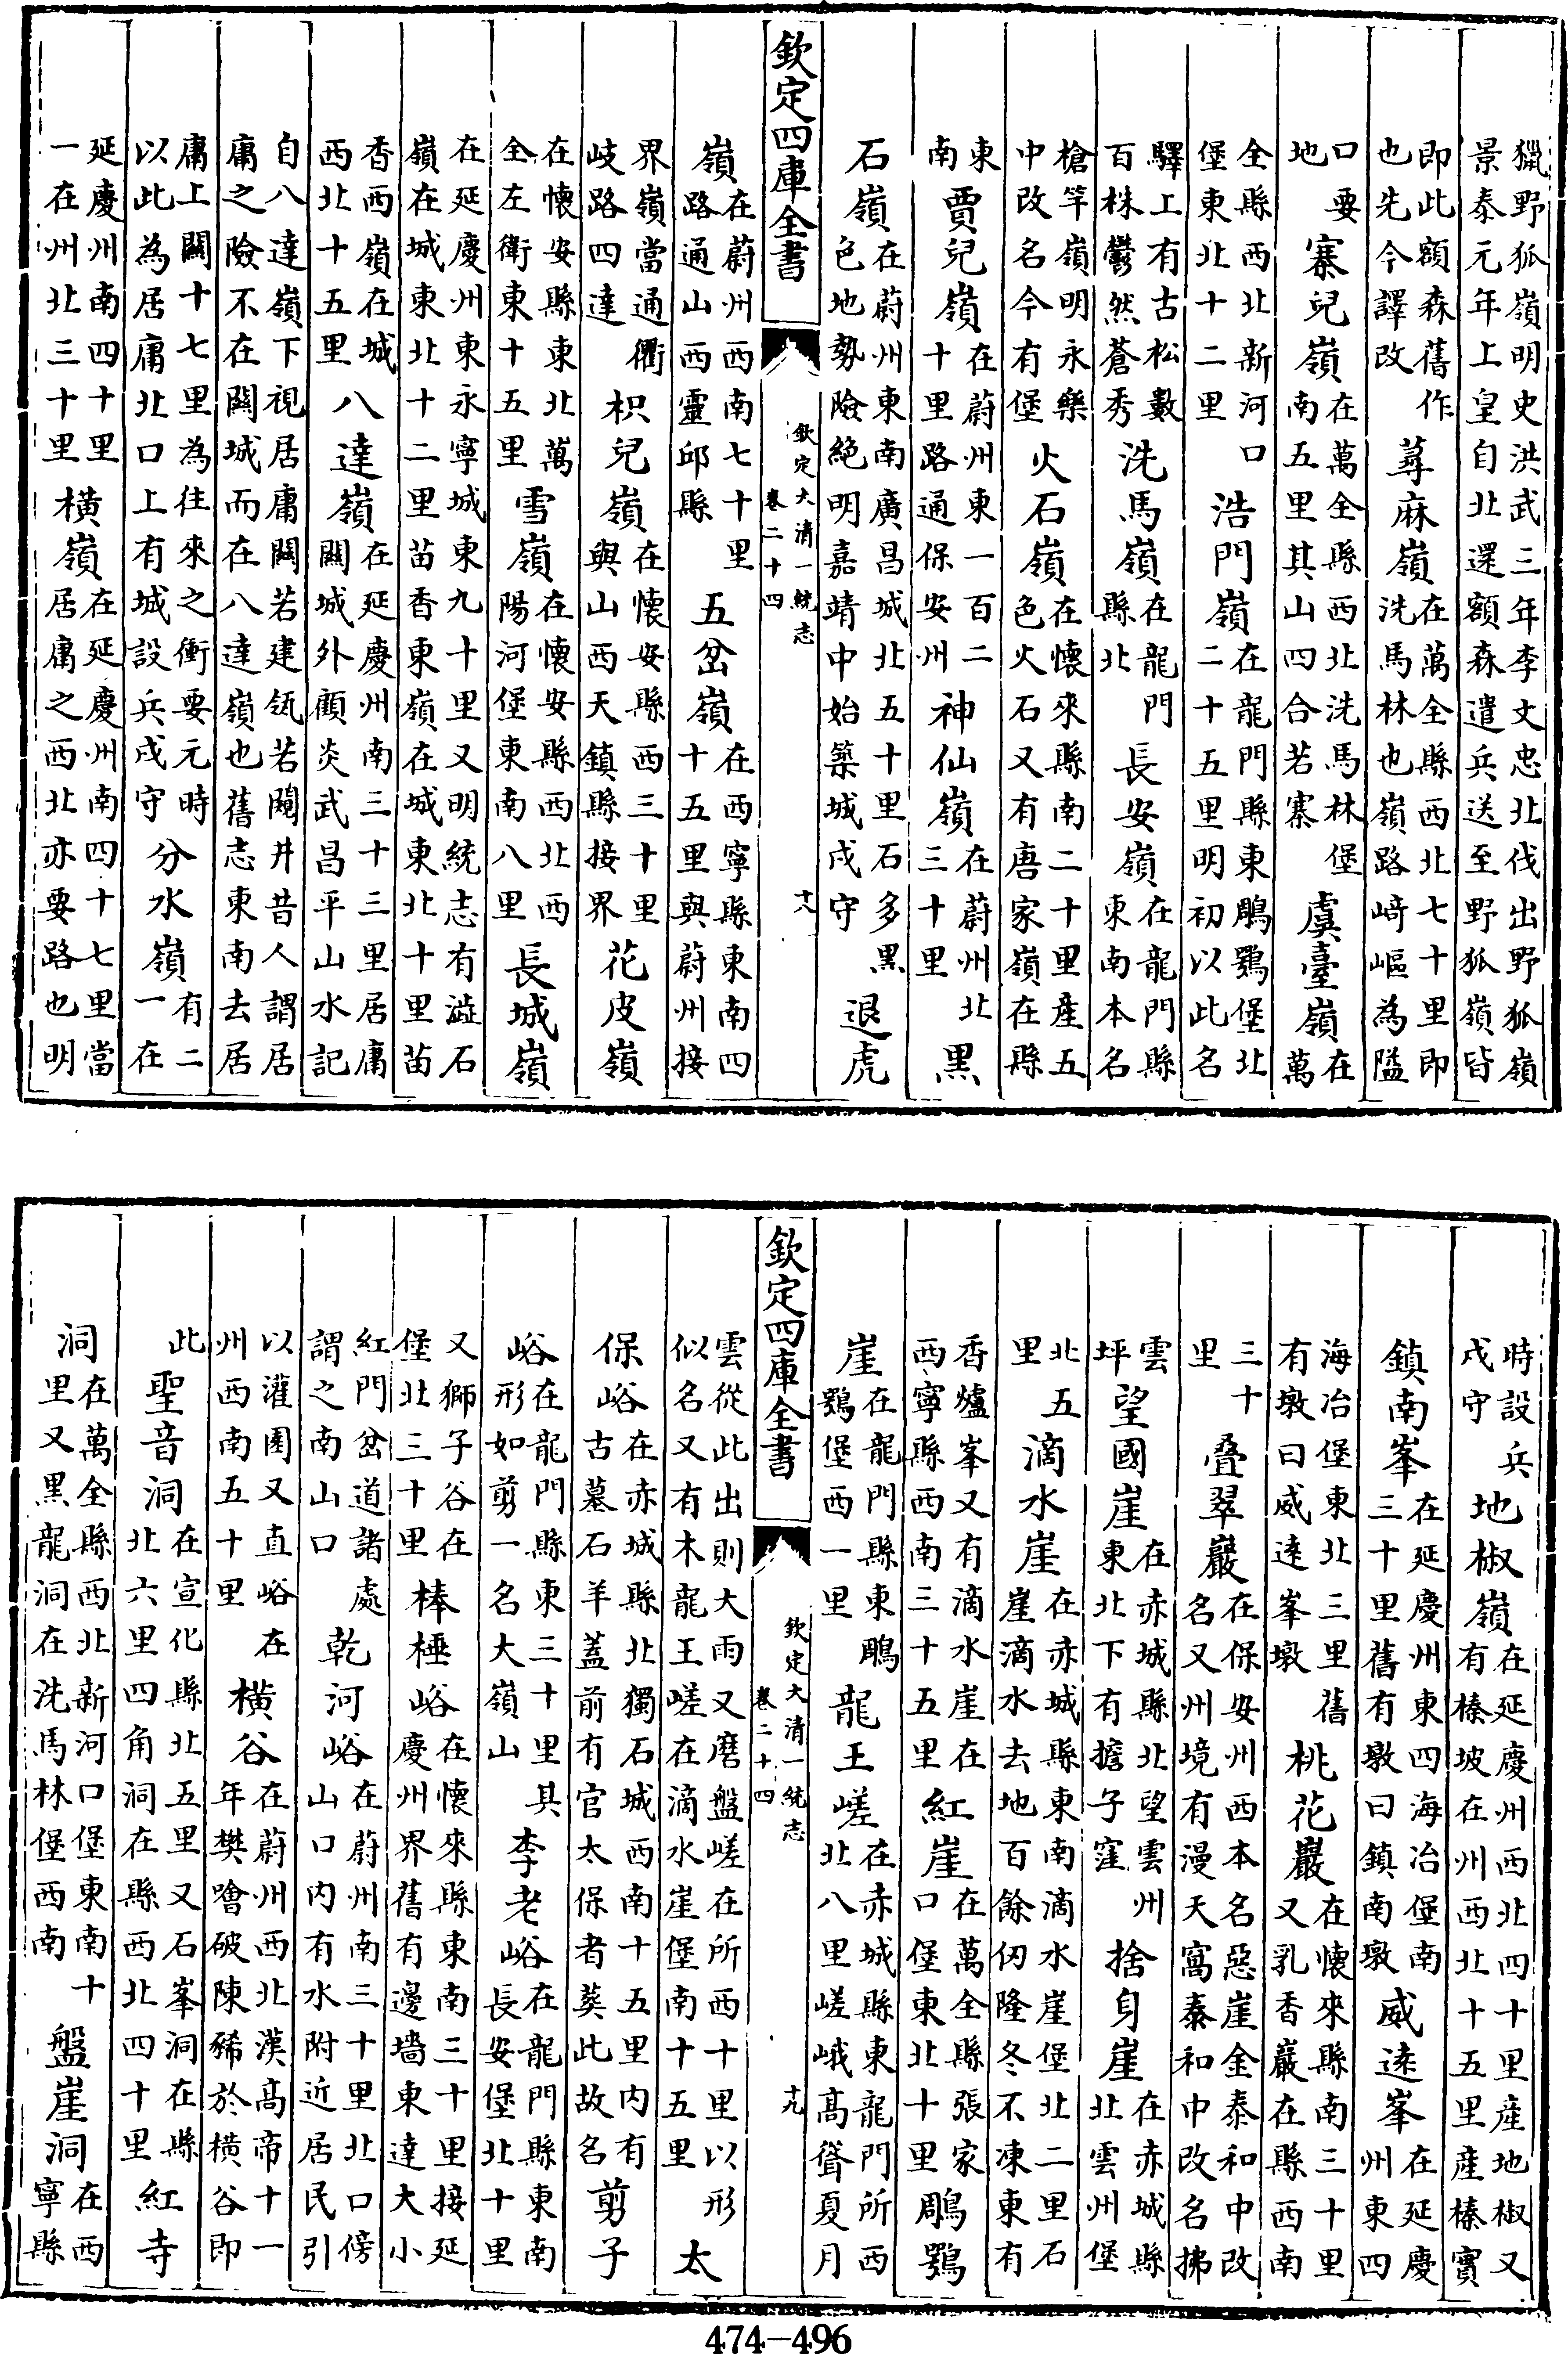 獵野狐嶺明史洪武三年李文忠北伐出野狐嶺
景泰元年上皇自北還額森遣兵送至野狐嶺皆
即此額森舊作也先今譯改蕁麻嶺在萬全縣西北七十里即洗馬林也嶺路﨑嶇為隘
口要地寨兒嶺在萬全縣西北洗馬林堡南五里其山四合若寨虞臺嶺在萬
全縣西北新河口堡東北十二里浩門嶺在龍門縣東鵰鶚堡北二十五里明初以此名
驛上有古松數百株鬱然蒼秀洗馬嶺在龍門縣北長安嶺在龍門縣東南本名
槍竿嶺明永樂中改名今有堡火石嶺在懷來縣南二十里産五色火石又有唐家嶺在縣
東南賈兒嶺在蔚州東一百二十里路通保安州神仙嶺在蔚州北三十里黑
石嶺在蔚州東南廣昌城北五十里石多黑色地勢險絶明嘉靖中始築城戍守退虎
欽定四庫全書
欽定大清一統志
卷二十四
十八
嶺在蔚州西南七十里路通山西靈邱縣五岔嶺在西寧縣東南四十五里與蔚州接
界嶺當通衢岐路四達枳兒嶺在懷安縣西三十里與山西天鎮縣接界花皮嶺
在懷安縣東北萬全左衛東十五里雪嶺在懷安縣西北西陽河堡東南八里長城嶺
在延慶州東永寧城東九十里又明統志有澁石
嶺在城東北十二里苗香東嶺在城東北十里苗
香西嶺在城西北十五里八達嶺在延慶州南三十三里居庸關城外顧炎武昌平山水記
自八達嶺下視居庸關若建瓴若闚井昔人謂居
庸之險不在關城而在八達嶺也舊志東南去居
庸上關十七里為往來之衝要元時以此為居庸北口上有城設兵戍守分水嶺有二一在
延慶州南四十里一在州北三十里橫嶺在延慶州南四十七里當居庸之西北亦要路也明
時設兵戍守地椒嶺在延慶州西北四十里産地椒又有榛坡在州西北十五里産榛實
鎮南峯在延慶州東四海冶堡南三十里舊有墩曰鎮南墩威遠峯在延慶州東四
海冶堡東北三里舊有墩曰威遠峯墩桃花巖在懷來縣南三十里又乳香巖在縣西南
三十里叠翠巖在保安州西本名惡崖金泰和中改名又州境有漫天窩泰和中改名拂
雲坪望國崖在赤城縣北望雲州東北下有擔子窪捨身崖在赤城縣北雲州堡
北五里滴水崖在赤城縣東南滴水崖堡北二里石崖滴水去地百餘仭隆冬不凍東有
香爐峯又有滴水崖在西寧縣西南三十五里紅崖在萬全縣張家口堡東北十里鵰鶚
崖在龍門縣東鵰鶚堡西一里龍王嵯在赤城縣東龍門所西北八里嵯峨高聳夏月
欽定四庫全書
欽定大清一統志
卷二十四
十九
雲從此出則大雨又磨盤嵯在所西十里以形似名又有木龍王嵯在滴水崖堡南十五里太
保峪在赤城縣北獨石城西南十五里内有古墓石羊蓋前有官太保者葬此故名剪子
峪在龍門縣東三十里其形如剪一名大嶺山李老峪在龍門縣東南長安堡北十里
又獅子谷在堡北三十里棒棰峪在懷來縣東南三十里接延慶州界舊有邊墻東達大小
紅門岔道諸處謂之南山口乾河峪在蔚州南三十里北口傍山口内有水附近居民引
以灌園又直峪在州西南五十里橫谷在蔚州西北漢高帝十一年樊噲破陳豨於横谷即
此聖音洞在宣化縣北五里又石峯洞在縣北六里四角洞在縣西北四十里紅寺
洞在萬全縣西北新河口堡東南十里又黑龍洞在洗馬林堡西南盤崖洞在西寧縣
474—496